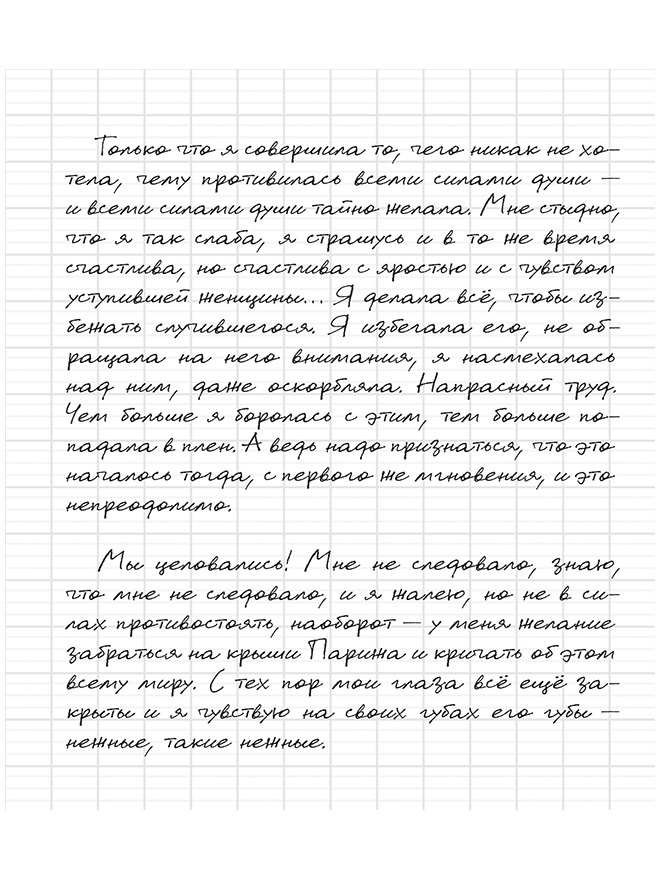 Только что я совершила то, чего никак не хо-
тела, чему противилась всеми силами души —
и всеми силами души тайно желала. Мне стыдно,
что я так слаба, я страшусь и в то же время
счастлива, но счастлива с яростью и с чувством
уступившей женщины... Я делала всё, чтобы из-
бежать случившегося. Я избегала его, не об-
ращала на него внимания, я насмехалась
над ним, даже оскорбляла. Напрасный труд.
Чем больше я боролась с этим, тем больше по-
падала в плен. А ведь надо признаться, что это
началось тогда, с первого же мгновения, и это
непреодолимо.
Мы целовались! Мне не следовало, знаю,
что мне не следовало, и я жалею, но не в си-
лах противостоять, наоборот — у меня желание
забраться на крыши Парижа и кричать об этом
всему миру. С тех пор мои глаза всё ещё за-
крыты и я чувствую на своих губах его губы —
нежные, такие нежные.